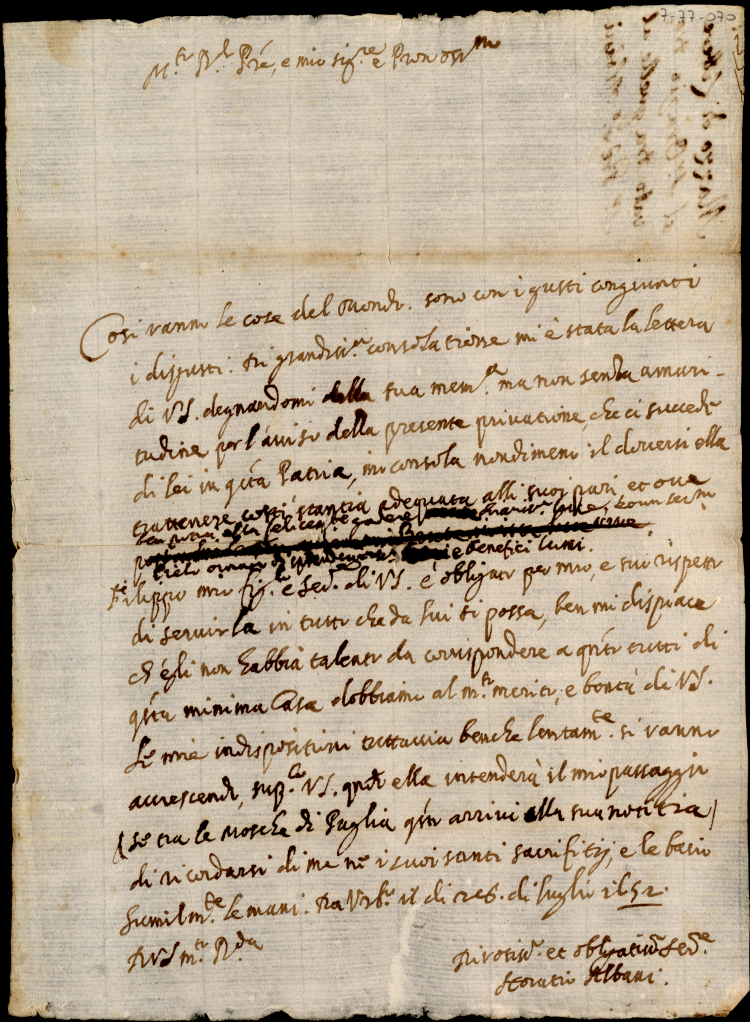 7-77-070
M.to R.do Prẽ, e mio sig.re e Pron oss.mo
Cosi vanno le cose del mondo. sono con i gusti congiunti
i disgusti. Di grandiss.ma consolatione mi è stata la lettera
di VS. degnandomi della sua mem.a ma non senza amari-
tudine per l'aviso della presente privatione, che ci succede
di lei in q̃sta Patria, mi consola nondimeno il doversi ella
trattenere costì stantia adequata alli suoi pari et ove
e benefici lumi.
Filippo mio fig.lo e Ser.re di VS. è obligato per mio, e suo rispetto
di servirla in tutto che da lui si possa, ben mi dispiace
ch'egli non habbia talento da corrispondere a q̃nto tutti di
q̃sta minima Casa dobbiamo al m.to merito, e bontà di VS.
Le mie indispositioni tuttavia benche lentam.te si vanno
accrescendo, supp.co VS. q̃ndo ella intenderà il mio passaggio
(se tra le mosche di Puglia q̃sto arrivi alla sua notitia)
di ricordarsi di me nè i suoi santi sacrifitij, e le bacio
humilm.te le mani. Da Urb.o il di 26. di luglio 1652.
Di VS m.to R.da
Divotiss.o et obligatiss.o Ser.re
Horatio Albani.